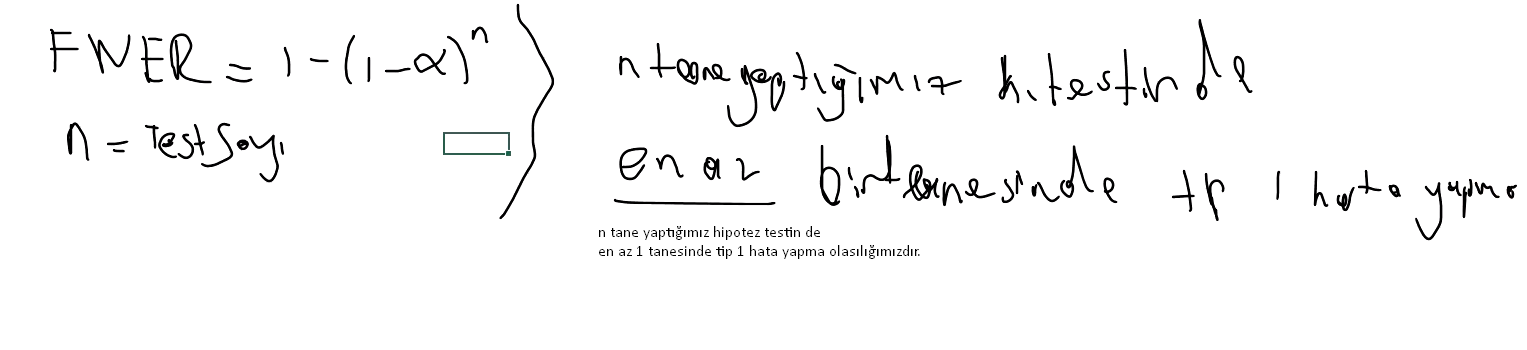 FWER = 1-(1-α)^n
n = Test Sayı
n tane yaptığımız h. testinde
en az birtanesinde tip 1 hata yapma
n tane yaptığımız hipotez testin de
en az 1 tanesinde tip 1 hata yapma olasılığımızdır.